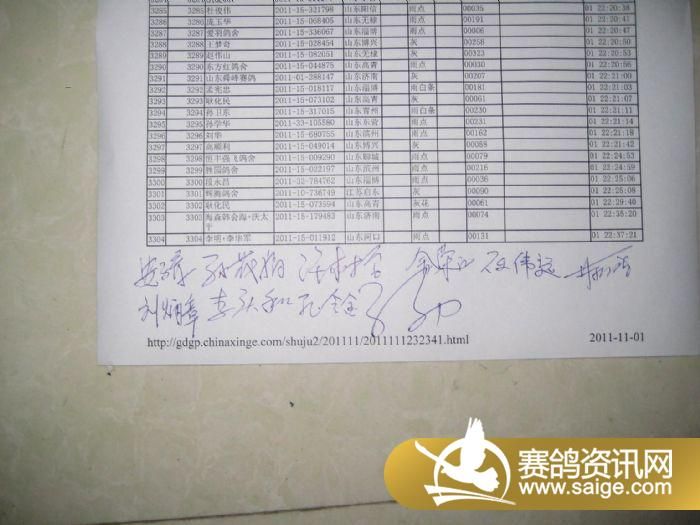 3285 3285 杜俊伟 2011-15-321798 山东阳信 雨点 00035 01 22:20:38
3286 3286 庞玉华 2011-15-068405 山东无棣 雨点 00191 01 22:20:41
3287 3287 爱羽鸽舍 2011-15-336067 山东淄博 雨点 00006 01 22:20:47
3288 3288 王梦奇 2011-15-028454 山东博兴 灰 00258 01 22:20:50
3289 3289 赵伟山 2011-15-082051 山东无棣 灰 00323 01 22:20:53
3290 3290 东方红鸽舍 2011-15-044875 山东高青 雨点 00030 01 22:20:56
3291 3291 山东舜峰赛鸽 2011-01-288147 山东济南 灰 00207 01 22:21:00
3292 3292 孟宪忠 2011-15-018117 山东淄博 雨白条 00181 01 22:21:03
3293 3293 耿化民 2011-15-073102 山东高青 灰 00061 01 22:21:07
3294 3294 孙卫东 2011-15-317015 山东青州 雨白条 00230 01 22:21:11
3295 3295 孙学华 2011-33-105580 山东东营 雨点 00231 01 22:21:14
3296 3296 刘华 2011-15-690755 山东滨州 雨点 00162 01 22:21:18
3297 3297 高顺利 2011-15-049014 山东博兴 灰 00088 01 22:21:42
3298 3298 恒丰强飞鸽舍 2011-15-009290 山东聊城 雨点 00071 01 22:24:53
3299 3299 韩园鸽舍 2011-15-022197 山东滨州 雨点 00216 01 22:24:59
3300 3300 段永昌 2011-32-784762 山东淄博 雨点 00036 01 22:25:06
3301 3301 辉腾鸽舍 2011-10-736749 江苏启东 灰 00090 01 22:25:08
3302 3302 耿化民 2011-15-073594 山东高青 灰花 00061 01 22:29:40
3303 3303 海森韩会海+庆太平 2011-15-179483 山东济南 雨点 00074 01 22:35:20
3304 3304 李明+李华军 2011-15-011912 山东河口 雨点 00131 01 22:37:21
刘炳章
http://gdgp.chinaxinge.com/shuju2/201111/2011111232341.html 2011-11-01
赛鸽资讯网
www.saige.com